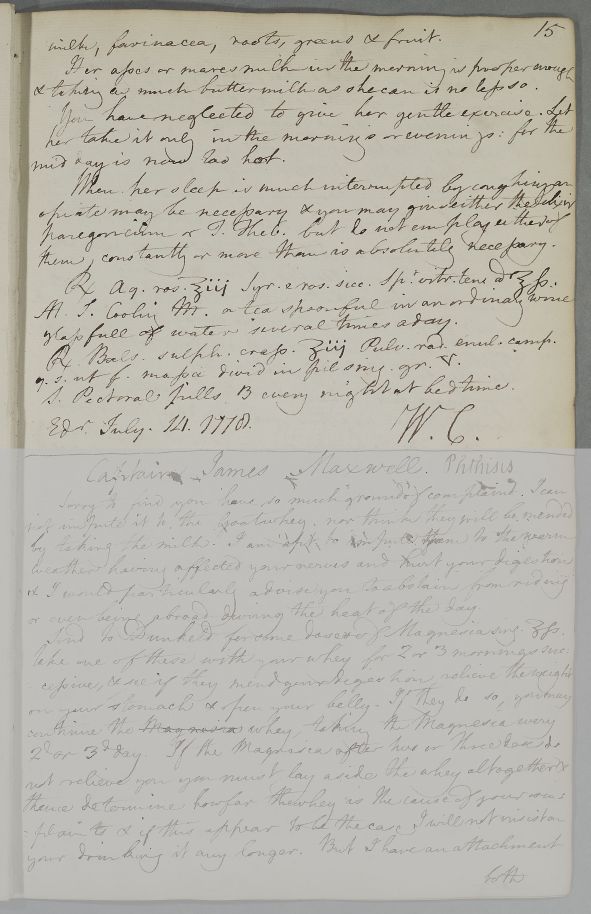 15
milk, farinacea, roots, greens & fruit.
Her asses or mares milk in the morning is proper enough
& taking as much butter milk as she can is no less so.
You have neglected to give her gentle exercise. Let
her take it only in the mornings or evenings: for the
mid day is now too hot.
When her sleep is much interrupted by coughing an
opiate may be necessary & you may give either the Elixir
paregoricum or T. Theb. but do not employ either of
them, constantly or more than is absolutely necessary.
Rx Aq. ros. ℥iij Syr. e ros. sicc. Sp. vitr. ten. a ℥ss.
M. S. Cooling Mr. a tea spoonful in an ordinary wine
glass full of water several times a day.
Rx Bals. sulph. crass. ʒiij Pulv. rad. enul. camp.
q. s. ut f. massa divid in pil sing. gr. v.
S. Pectoral pills 3 every night at bedtime.
Edr. July. 14. 1778. W. C.
Captain James Maxwell. Phthisis
Sorry to find you have so much ground of complaint. I can
not impute it to the Goatwhey. nor think they will be mended
by taking the milk. I am apt to impute them to the warm
weather having affected your nerves and hurt your digestion
& I would particularly advise you to abstain from riding
or even being abroad during the heat of the day.
Send to Dunkeld for some doses of Magnesia sing. ʒss.
Take one of these with your whey for 2 or 3 mornings suc:
cessive, & see if they mend your digestion, relieve the weight
on your stomach & open your belly. If they do so, you may
continue the Magnesia whey, taking the Magnesia every
2d or 3d day. If the Magnesia after two or three doses do
not relieve you you must lay aside the whey altogether &
thence determine how far the whey is the cause of your com:
plaints & if this appear to be the case I will not insist on
your drinking it any longer. But I have an attachment
both